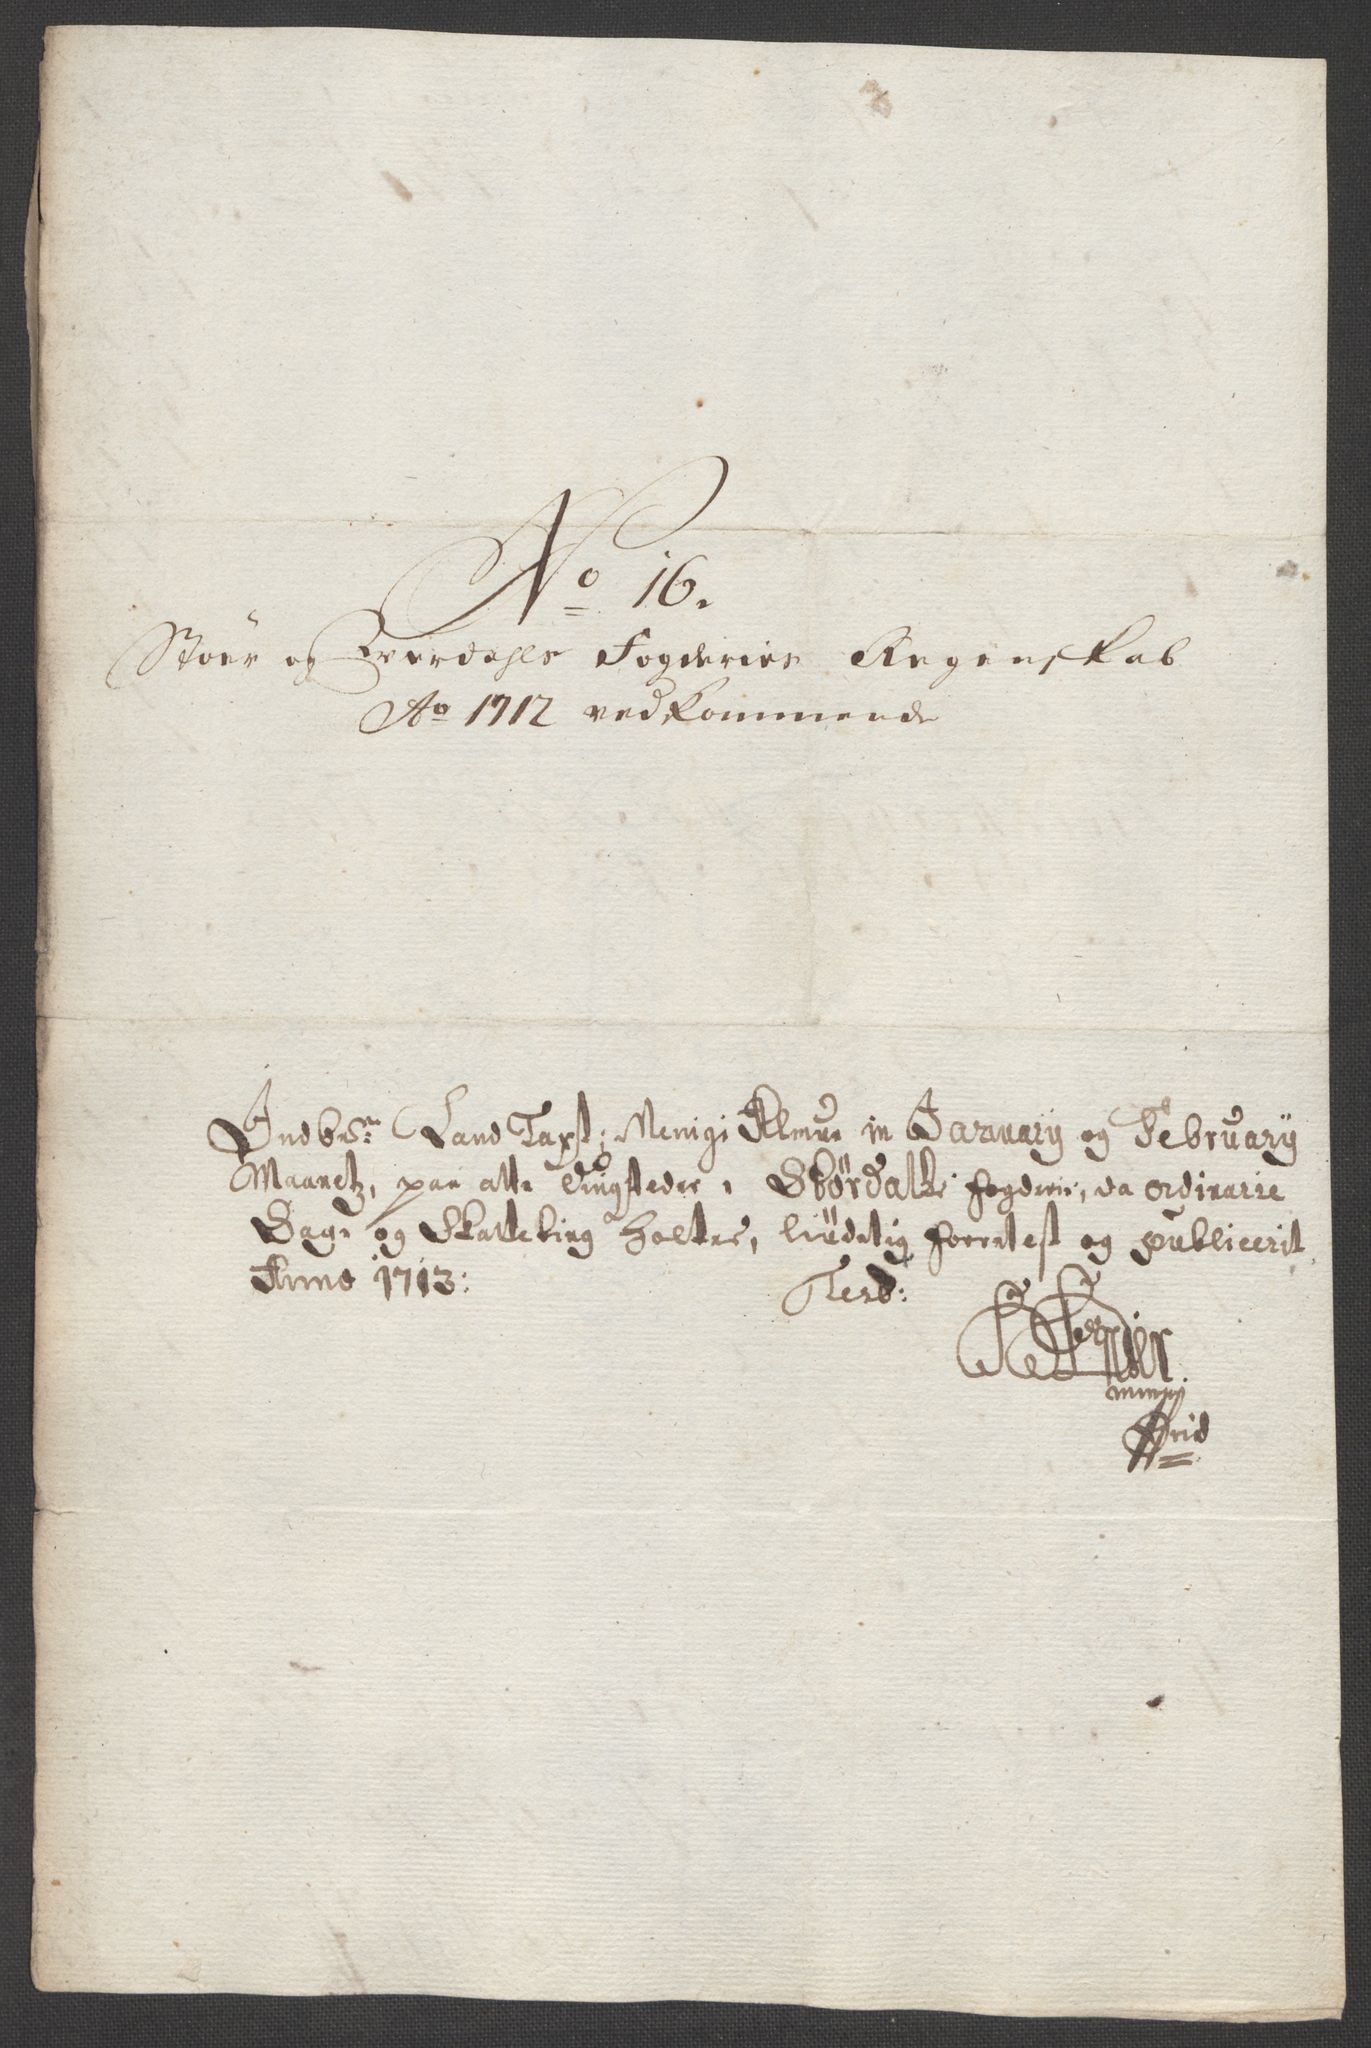 No 16.
Støer og Værdahls Fogderies Regenskab
Ao 1712 vedkommende
Indbem:te Land Taxt, Menige Almue in January og February
Maanetz, paa alle tingsteder i Størdalls fogderie, da ordinarie
Sage og Skatteting holtes, liudelig forrelæst og publicerit
Anno 1713:
Test:
mmpp